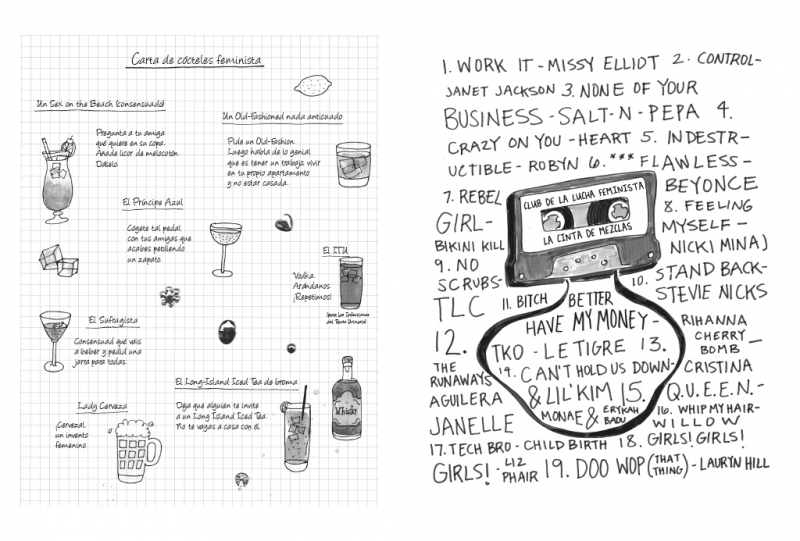 Carta de cócteles feminista
Un Sex on the Beach (consensuado)
Pregunta a tu amiga
que quiere en su copa.
Añade licor de melocotón.
Dáselo.
Un Old-Fashioned nada anticuado
Pide un Old-Fashion.
Luego habla de lo genial
que es tener un trabajo, vivir
en tu propio apartamento
y no estar casada.
El Príncipe Azul
Cógete tal pedal
con tus amigas que
acabes perdiendo
un zapato.
El ITU
Vodka.
Arándanos.
¡Repetimos!
(para las Infecciones
del Tracto Urinario)
El Sufragista
Consensuad que vais
a beber y pedid una
jarra para todas.
El Long-Island Iced Tea de broma
Deja que alguien te invite
a un Long Island Iced Tea.
No te vayas a casa con él.
Whisky
Lady Cerveza
¡Cerveza!,
un invento
femenino.
1. WORK IT - MISSY ELLIOT 2. CONTROL -
JANET JACKSON 3. NONE OF YOUR
BUSINESS - SALT - N - PEPA 4.
CRAZY ON YOU - HEART 5. INDESTR-
UCTIBLE - ROBYN 6. ***FLAWLESS -
BEYONCE
7. REBEL
GIRL -
BIKINI KILL
8. FEELING
MYSELF -
NICKI MINAJ
CLUB DE LA LUCHA FEMINISTA
LA CINTA DE MEZCLAS
9. NO
SCRUBS -
TLC
10.
STAND BACK -
STEVIE NICKS
11. BITCH BETTER
HAVE MY MONEY -
RIHANNA
12.
TKO - LE TIGRE 13.
CHERRY
BOMB -
THE
RUNAWAYS
14. CAN'T HOLD US DOWN -
CRISTINA
AGUILERA
& LIL' KIM 15.
Q.U.E.E.N. -
JANELLE
MONAE & ERYKAH
BADU
16. WHIP MY HAIR -
WILLOW
17. TECH BRO - CHILD BIRTH 18. GIRLS! GIRLS!
GIRLS! - LIZ
PHAIR 19. DOO WOP (THAT
THING) - LAURYN HILL